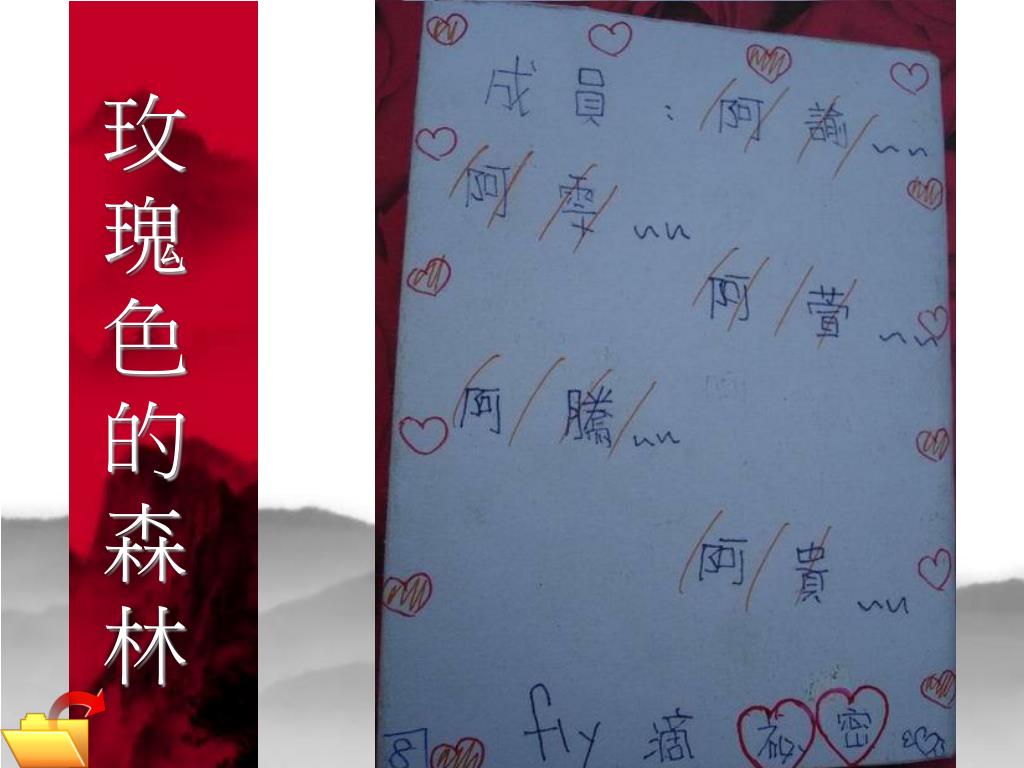 玫瑰色的森林
成員：阿諭~~
阿雫~~
阿萱~~
阿騰~~
阿貴~~
fly 滴 祕密
8